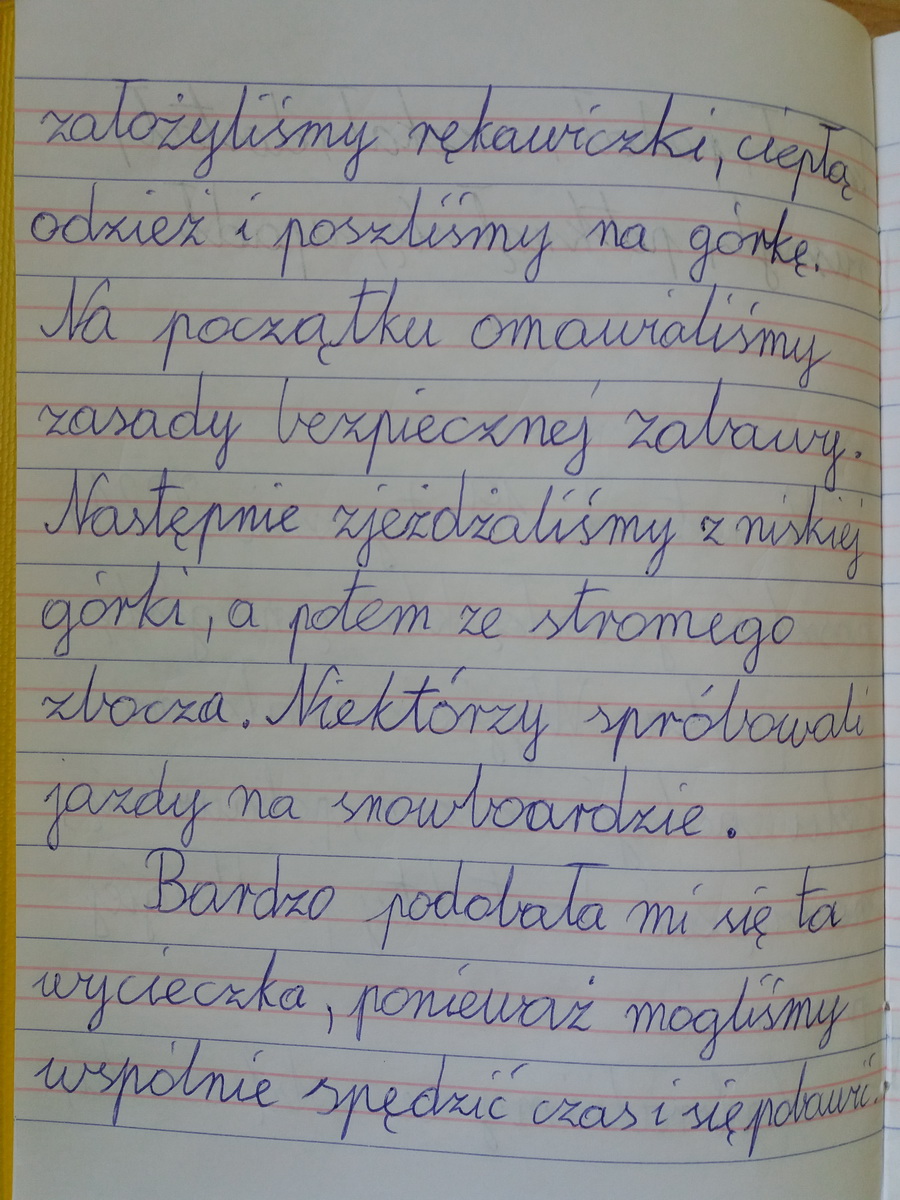 założyliśmy rękawiczki, ciepłą
odzież i poszliśmy na górkę.
Na początku omawialiśmy
zasady bezpiecznej zabawy.
Następnie zjeżdżaliśmy z niskiej
górki, a potem ze stromego
zbocza. Niektórzy spróbowali
jazdy na snowboardzie.
Bardzo podobała mi się ta
wycieczka, ponieważ mogliśmy
wspólnie spędzić czas i się pobawić.